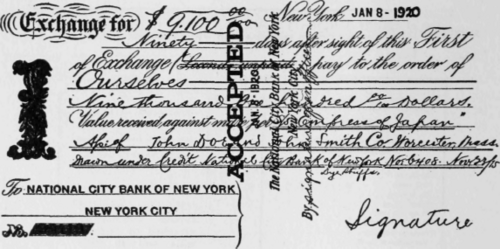 Exchange for $ 9,100 00/00 New York JAN 8 - 1920
Ninety days after sight of this First
of Exchange (Second unpaid) pay to the order of
Ourselves
Nine thousand dred 00/100 Dollars.
Value received against "Empress of Japan"
of John Do Smith Co. Worcester, Mass.
Drawn under Credit National City Bank of New York No. 6408
To NATIONAL CITY BANK OF NEW YORK
NEW YORK CITY
Signature
ACCEPTED
JAN 8 - 1920
The National City Bank of New York
New York City
By